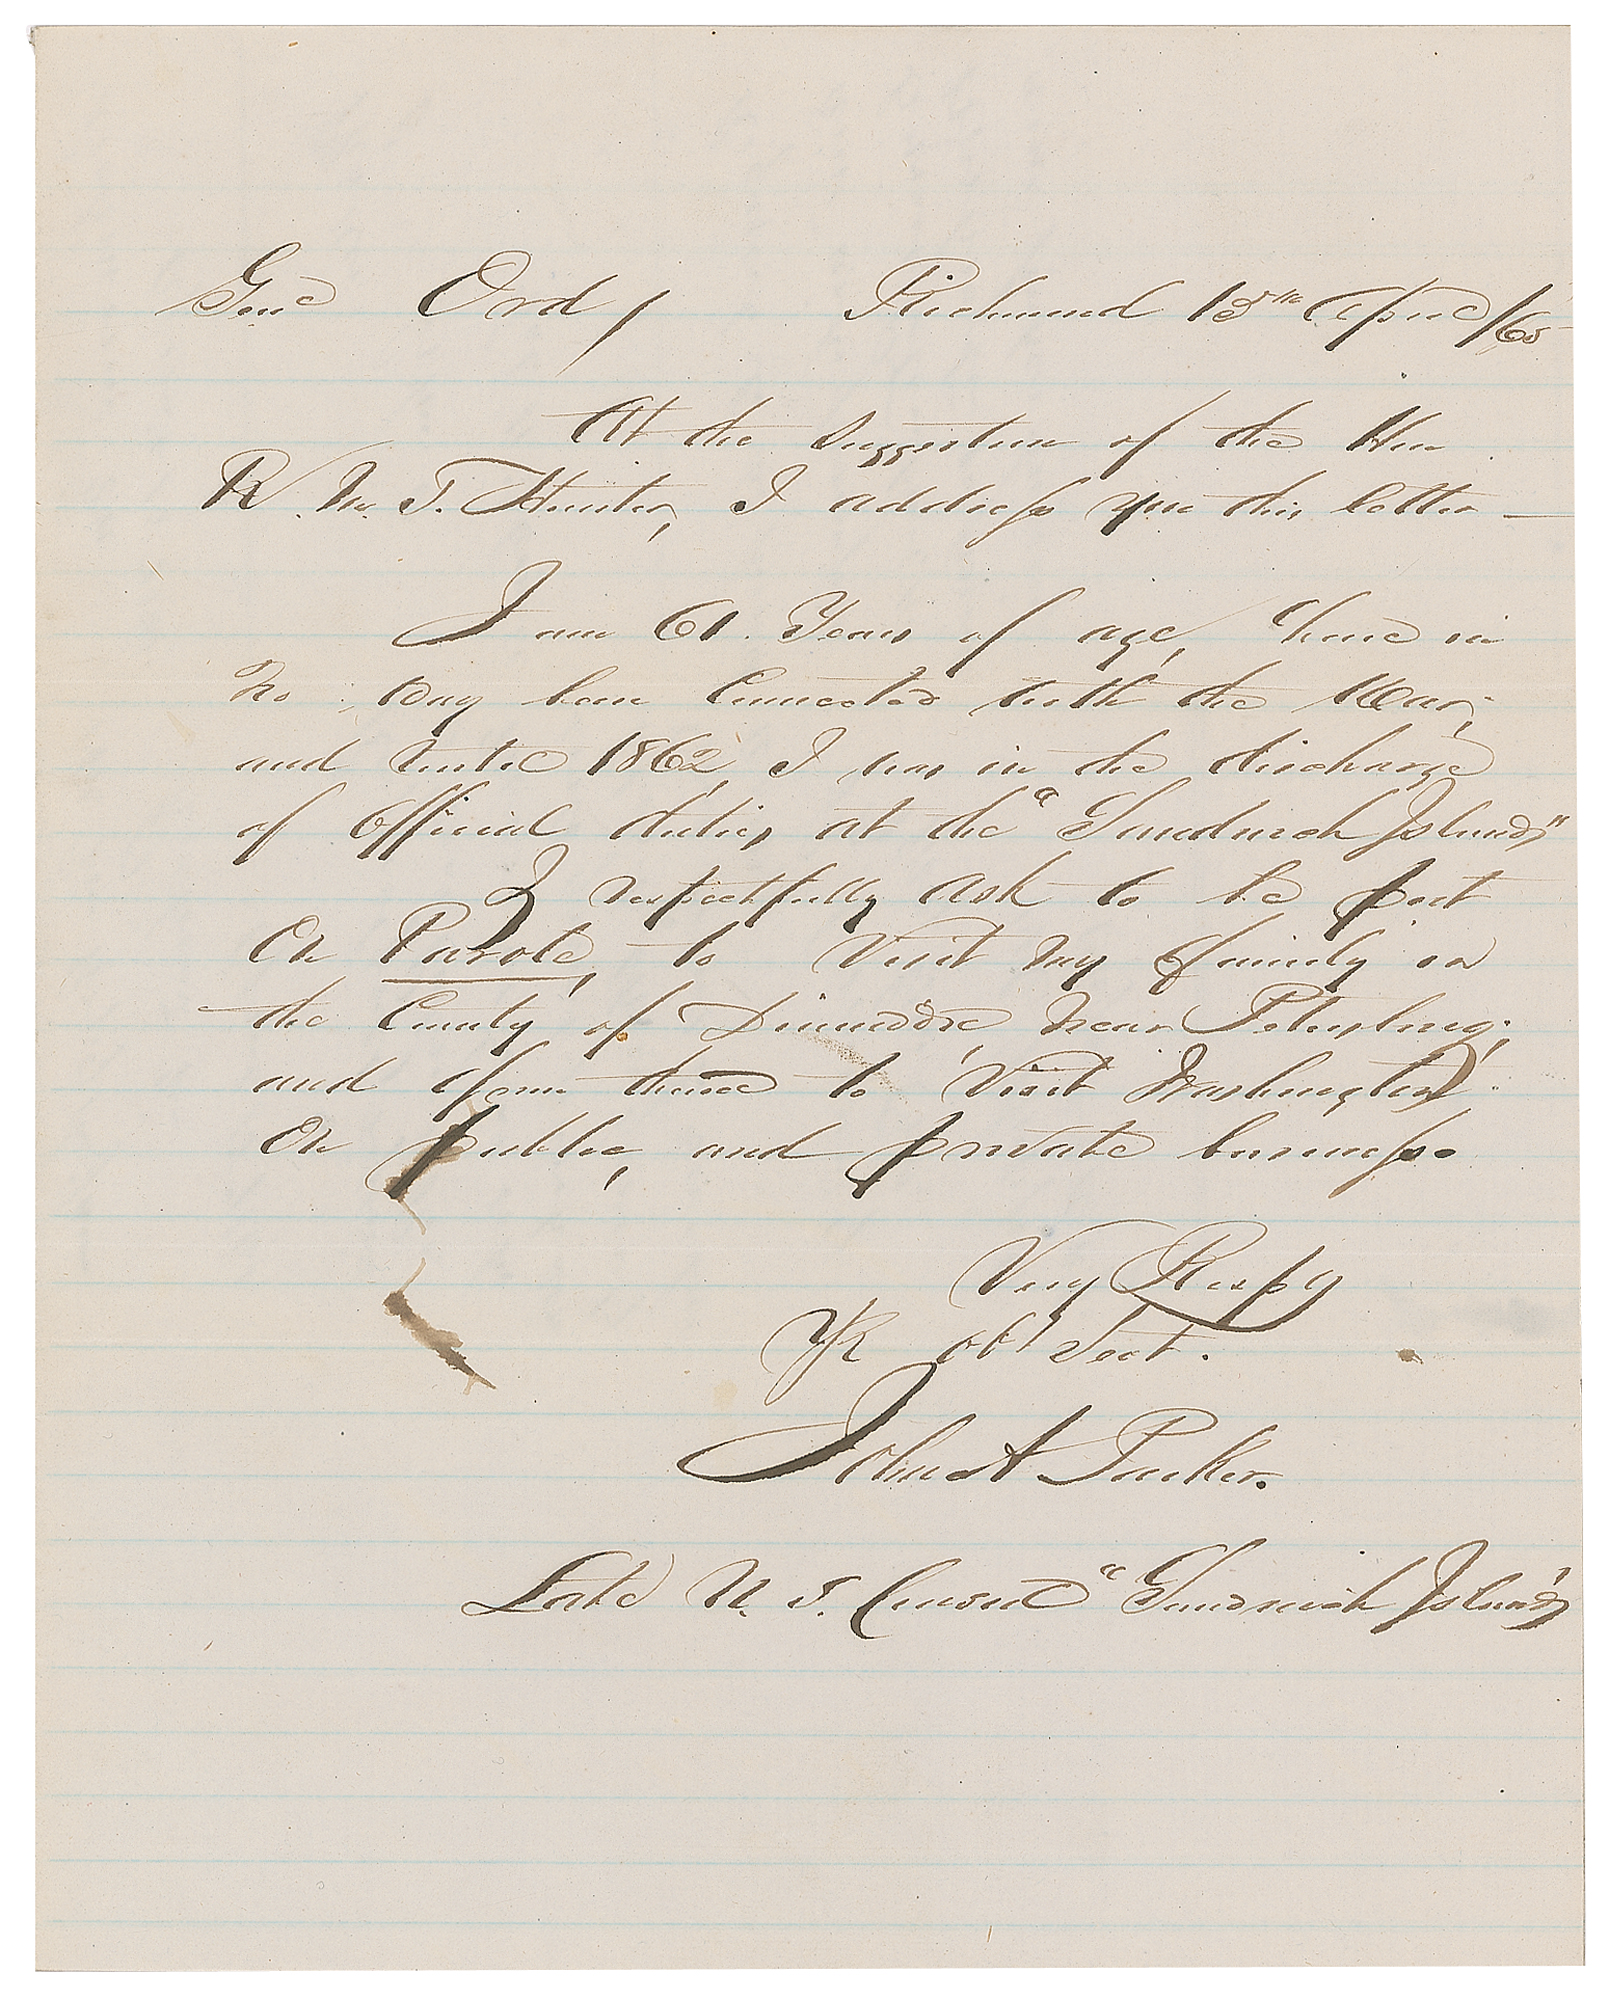 Genl Ord, Richmond 15th April /65
At the Suggestion of the Hon
R. M. T. Hunter, I address you this letter —
I am 61 Years of age, have in
No way been Connected with the War,
and until 1862, I was in the discharge
of Official duties, at the "Sandwich Islands"
I respectfully ask to be put
On Parole, to Visit my family in
the County of Dinwiddie, Near Petersburg;
and from thence to Visit Washington
On public, and private business.
Very Respy
Yr obt Servt.
John A Parker.
Late U. S. Consul "Sandwich Islands